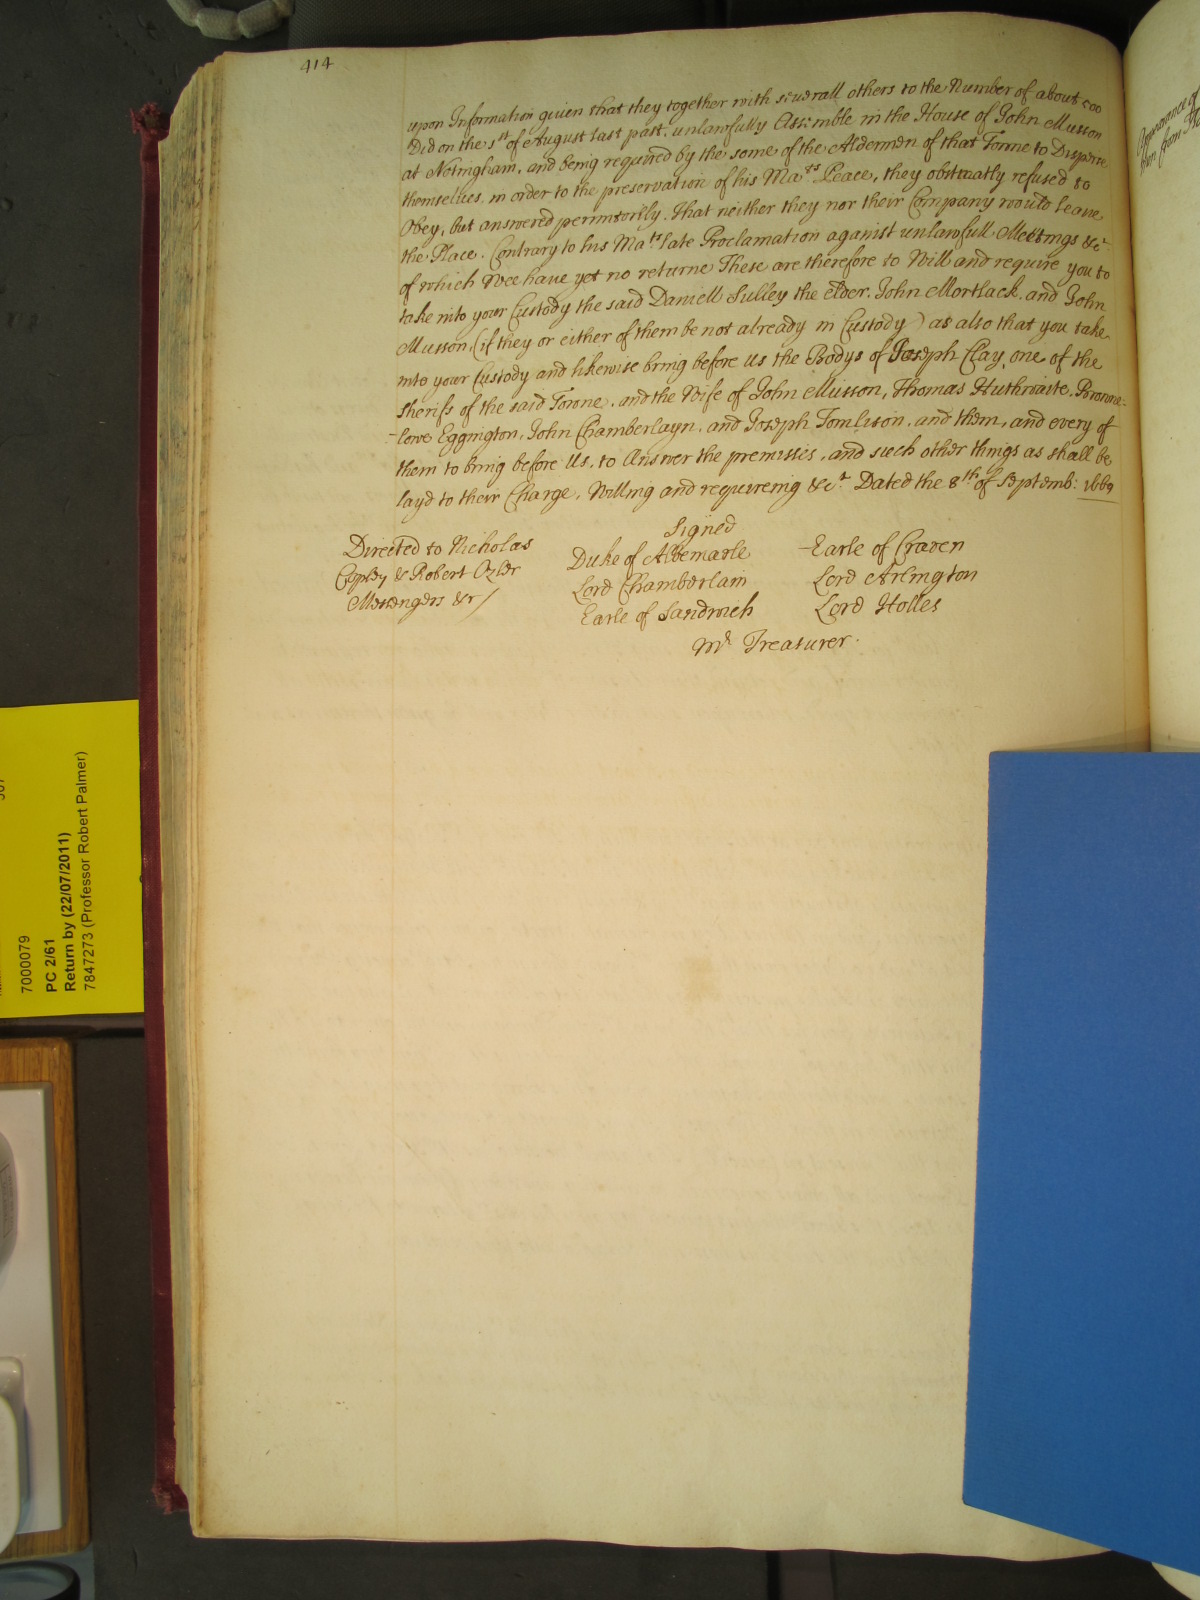 414
upon Information giuen that they together with seuerall others to the Number of about 500
Did on the 1st of August last past, unlawfully Assemble in the House of John Musson
at Notingham, and being required by the some of the Aldermen of that Towne to Disperse
themselves, in order to the preservation of his Ma.ts Peace, they obstinatly refused to
Obey, but answered peremtorily. That neither they nor their Company would leave
the Place. Contrary to his Ma.ts late Proclamation against unlawfull Meetings &c.
of which Wee have yet no returne These are therefore to Will and require you to
take into your Custody the said Daniell Sulley the elder. John Mortlack, and John
Musson, (if they or either of them be not already in Custody) as also that you take
into your Custody and likewise bring before us the Bodys of Joseph Clay, one of the
sherifs of the said Towne, and the Wife of John Musson, Thomas Huthwaite,
=love Eggington, John Chamberlayn, and Joseph Tomlison, and them, and every of
them to bring before Us, to Answer the premisses, and such other things as shall be
layd to their Charge, Willing and requireing &c.a Dated the 8th of Septemb: 1669
Signed
Directed to Nicholas Duke of Albemarle Earle of Craven
Copley & Robert Lord Chamberlain Lord Arlington
Messengers &c/ Earle of Sandwich Lord Holles
Mr Treasurer.
Appearance of
7000079
PC 2/61
Return by (22/07/2011)
7847273 (Professor Robert Palmer)